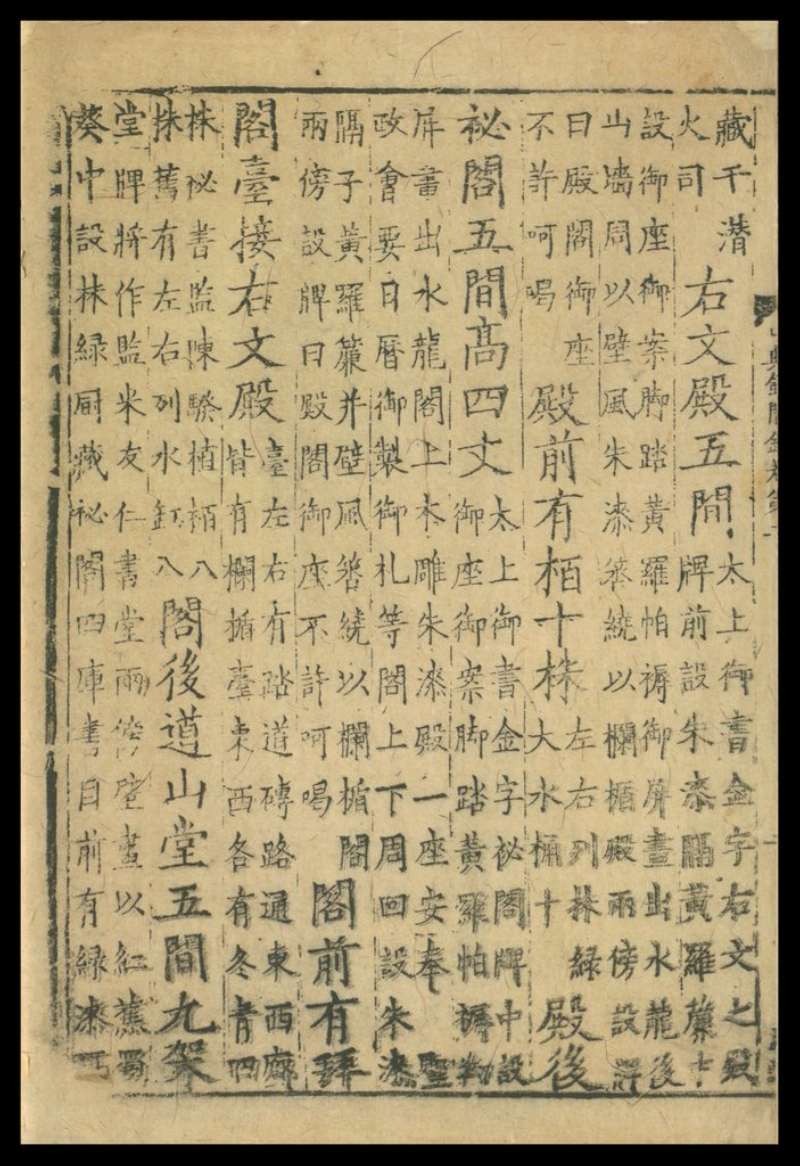 藏干潛
火司
右文殿五間
太上御書金字右文之殿
牌前設朱漆隔黃羅簾十
設御座御案脚踏黃羅帕褥御屏畫出水龍後
山墻周以壁風朱漆笭繞以欄楯殿兩傍設牌
曰殿閣御座
不許呵喝
殿前有栢十株
左右列抹綠
大水桶十
殿後
祕閣五間高四丈
太上御書金字祕閣牌中設
御座御案脚踏黃羅帕褥勒
屏畫出水龍閣上木雕朱漆殿一座安奉聖
政會要日曆御製御札等閣上下周回設朱漆
隔子黃羅簾并壁風笭繞以欄楯閣
兩傍設牌曰殿閣御座不許呵喝
閣前有拜
閣臺接右文殿
臺左右有踏道磚路通東西廊
皆有欄楯臺東西各有冬青四
株祕書監陳騤植栢八
株舊有左右列水缸八
閣後道山堂五間九架
堂牌將作監米友仁書堂兩傍壁畫以紅蕉蜀
葵中設抹綠厨藏祕閣四庫書目前有綠漆